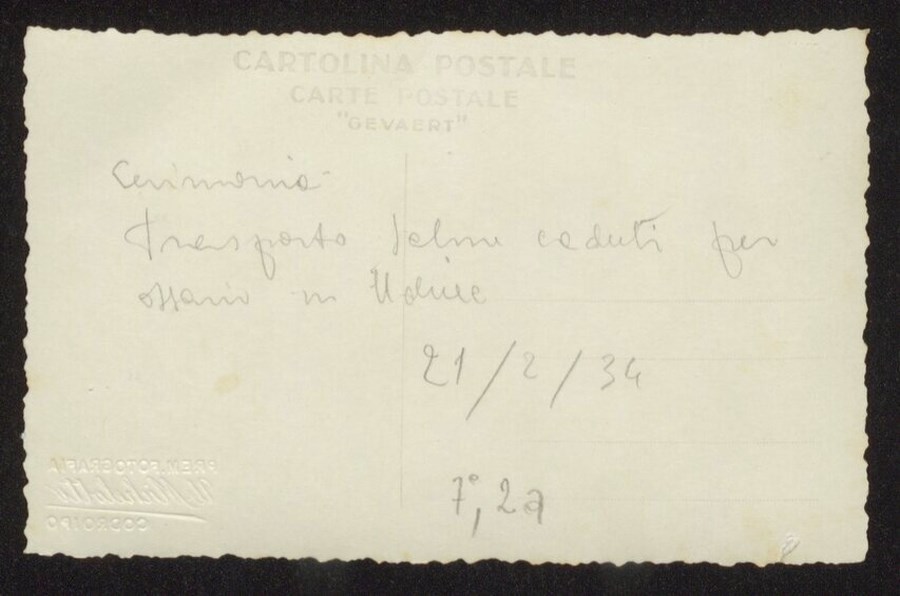 CARTOLINA POSTALE
CARTE POSTALE
"GEVAERT"
Cerimonia
Trasporto Salme caduti per
ossario in Udine
21/2/34
7°, 2a
PREM. FOTOGRAFIA
CODROIPO